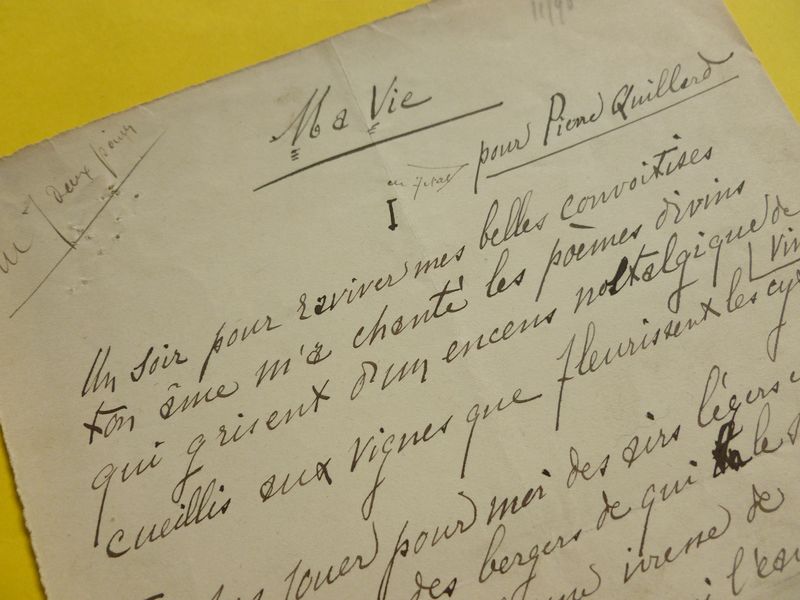 11/90
Ma Vie
pour Pierre Quillard
Deux pages
I
Un soir pour raviver mes belles convoitises
ton âme m'a chanté les poèmes divins
qui grisent d'un encens nostalgique de
vin
cueillis aux vignes que fleurissent les cy
jouer pour moi des airs légers
des bergers de qui le
ivresse de
l'eau